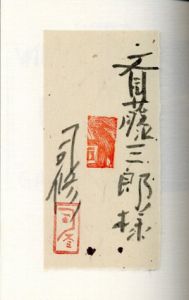 斉藤三郎様
司修